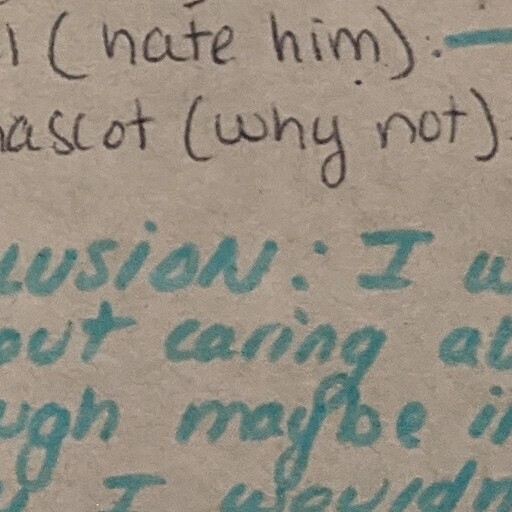 (hate him):
ascot (why not)
LUSION: I
out caring
ugh maybe
I wouldn